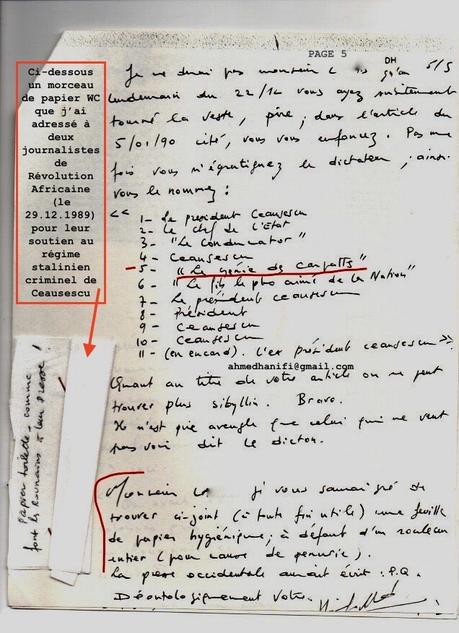 PAGE 5
5/5
Ci-dessous
un morceau
de papier WC
que j'ai
adressé à
deux
journalistes
de
Révolution
Africaine
(le
29.12.1989)
pour leur
soutien au
régime
stalinien
criminel de
Ceausescu
Je ne dirai pas monsieur
lendemain du 22/12 vous ayez subitement
tourné la veste, pire, dans l'article du
5/01/90 cité, vous vous enfoncez. Pas une
fois vous n'égratignez le dictateur, ainsi
vous le nommez :
<<
1- Le président Ceausescu
2- Le chef de l'Etat
3- "Le Conducator"
4- Ceausescu
5- "Le génie des Carpattes"
6- "Le fils le plus aimé de la Nation"
7- Le président Ceausescu
8- Président
9- Ceausescu
10- Ceausescu
11- (en encard). L'ex président Ceausescu >>.
ahmedhanifi@gmail.com
Quant au titre de votre article on ne peut
trouver plus sibyllin. Bravo.
Il n'est pire aveugle que celui qui ne veut
pas voir dit le dicton.
Monsieur
je vous saurai gré de
trouver ci-joint (à toute fin utile) une feuille
de papier hygiénique, à défaut d'un rouleau
entier (pour cause de pénurie).
La presse occidentale aurait écrit : P.Q.
Déontologiquement Votre.
papier toilette - comme
font les Roumains à leur presse !